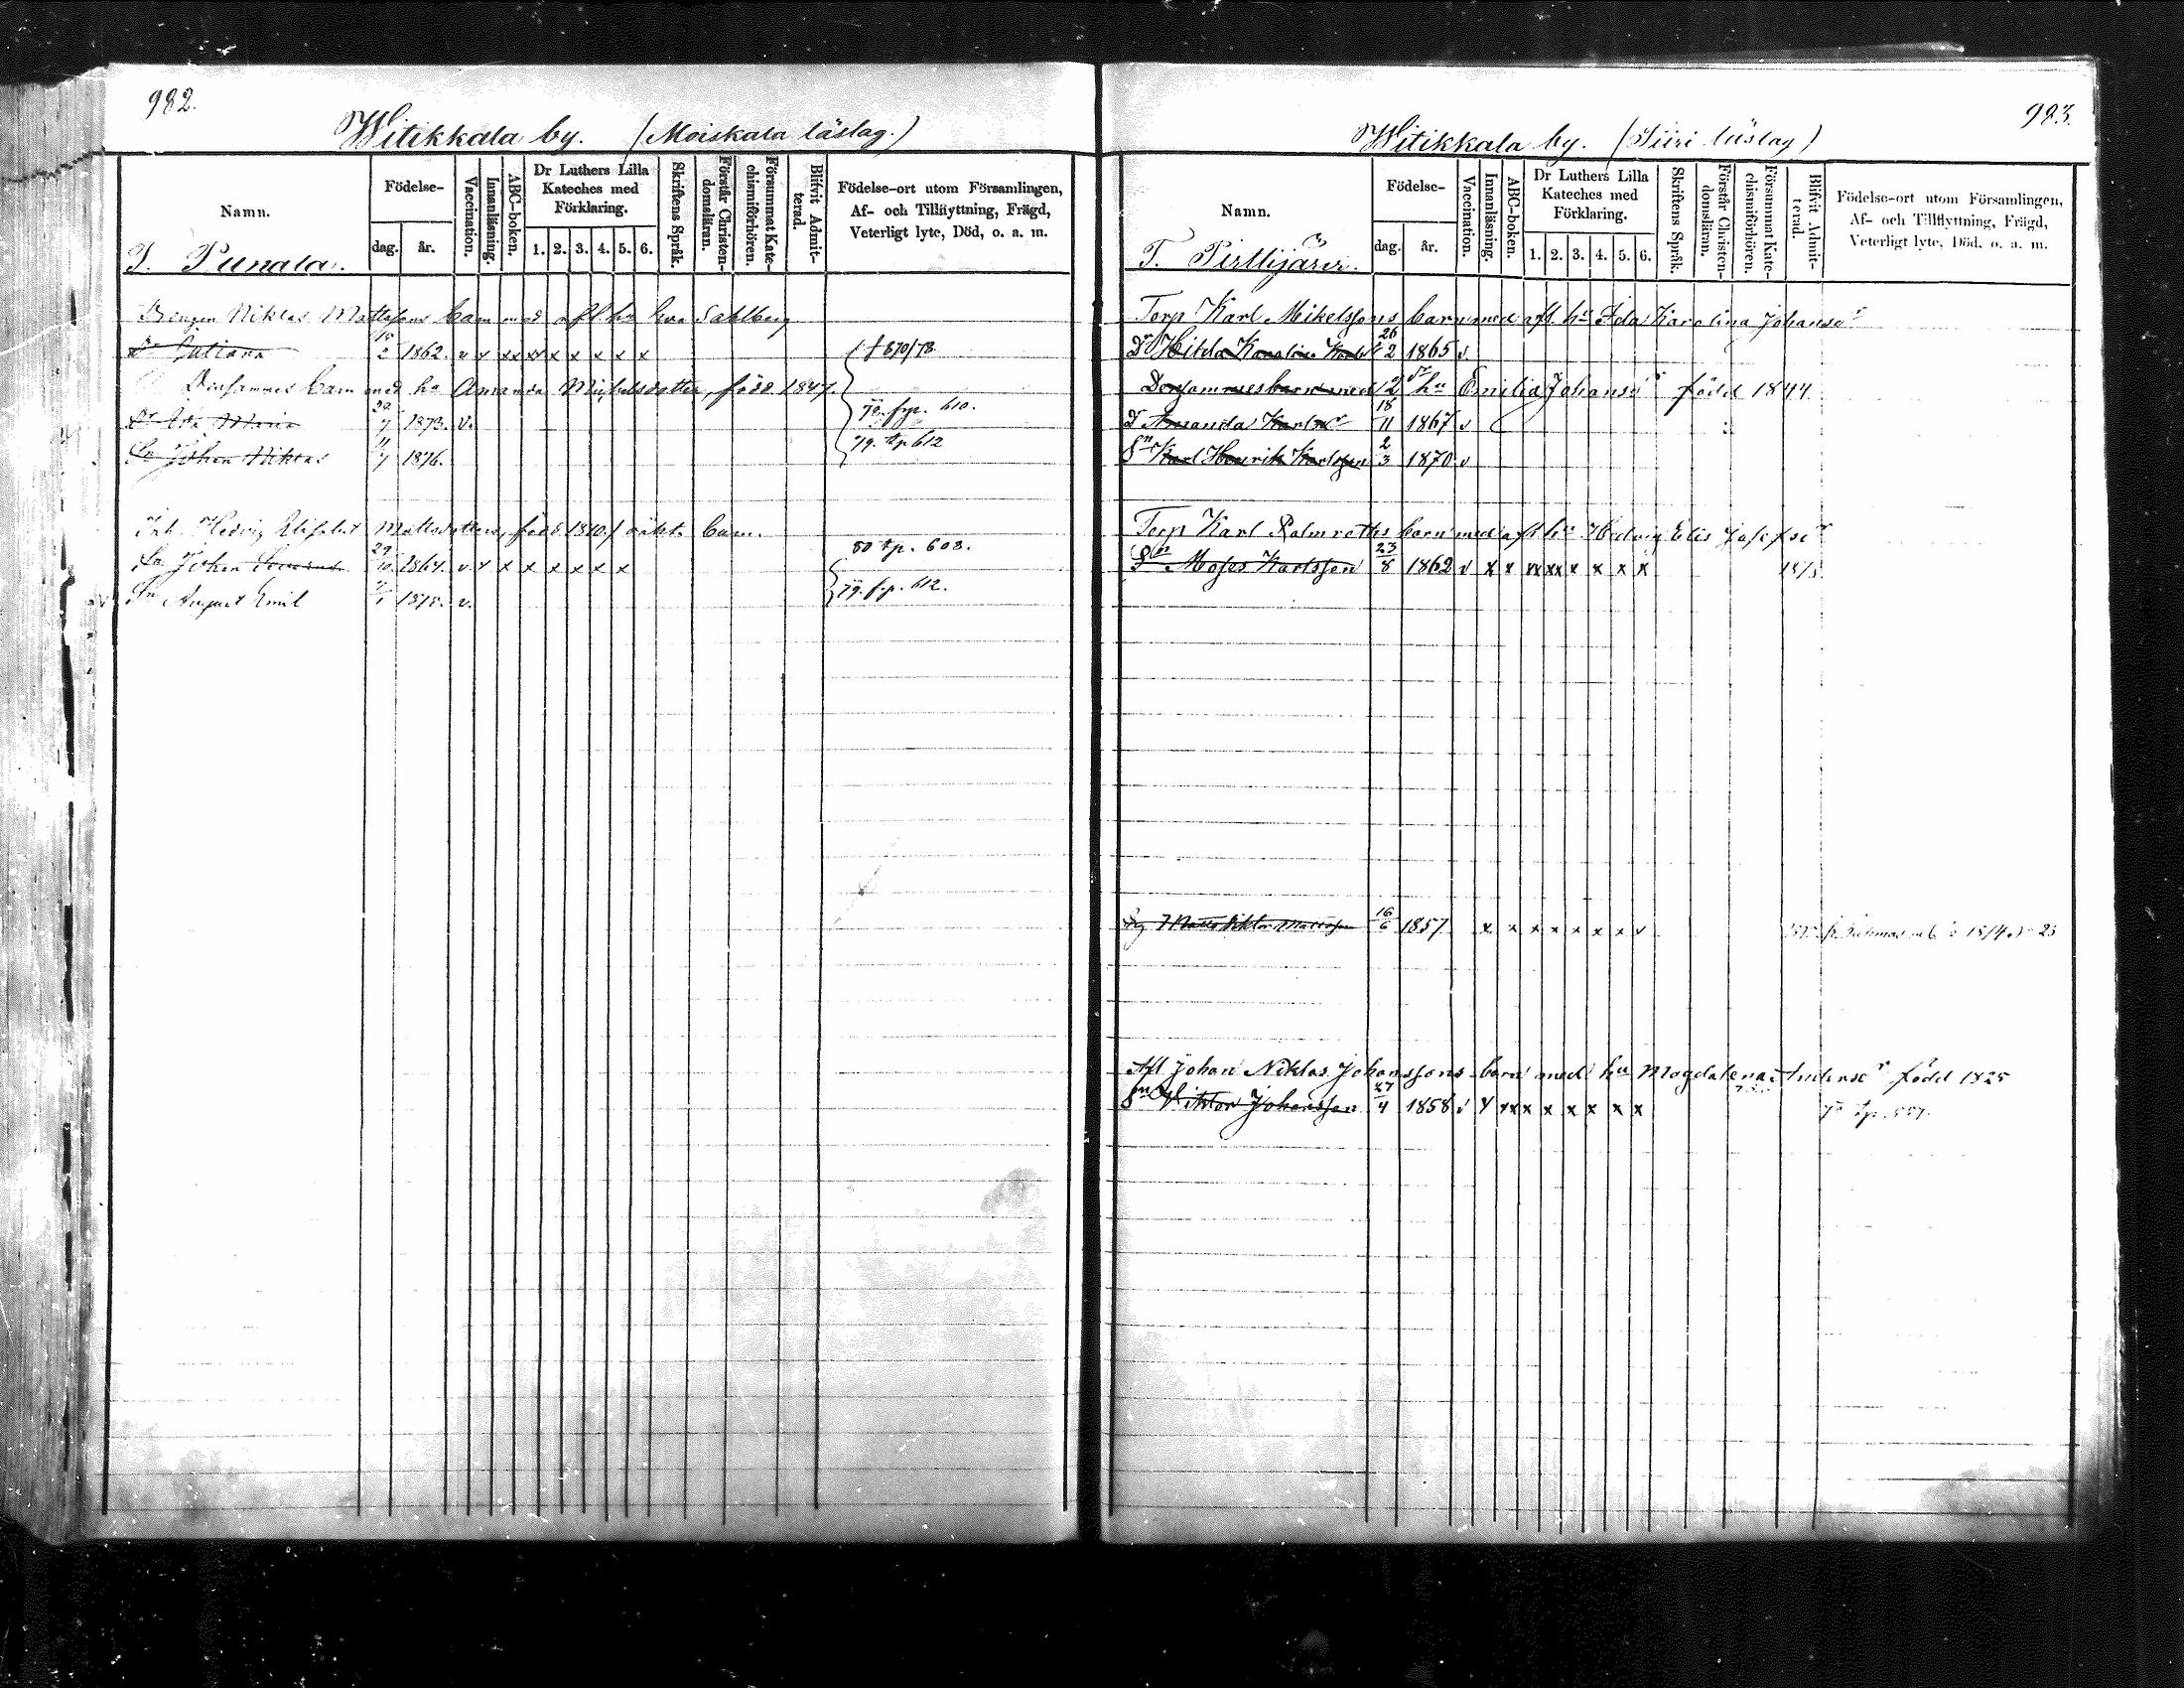 982.
Witikkala by. (Moiskala läslag.)
Namn.
Födelse-
dag. år.
Vaccination.
Innanläsning.
ABC-boken.
Dr Luthers Lilla Kateches med Förklaring.
1. 2. 3. 4. 5. 6.
Skriftens Språk.
Förstår Christen-domsläran.
Försummat Kate-chismiförhören.
Blifvit Admit-terad.
Födelse-ort utom Församlingen,
Af- och Tillflyttning, Frägd,
Veterligt lyte, Död, o. a. m.
T. Punala.
Drengen Niklas Mattssons barn med afl. hu Eva Sahlberg
Dr Juliana 2 1862. v x xx xx x x x x x f 870/78
Densammes barn med hu Amanda Mickelsdotter, född 1847.
Dr Ida Maria 20/7 1873. v. 79. fr p. 610.
Sn Johan Niklas 11/7 1876. 79. tp 612
Inh. Hedvig Elisabet Mattsdotters, född 1840. / oäkt. barn.
Sn Johan 29/10 1864. v x x x x x x x 80 tp. 608.
Sn August Emil 1878. v. 79. fr p. 612.
983.
Witikkala by. (Siiri läslag)
Namn.
Födelse-
dag. år.
Vaccination.
Innanläsning.
ABC-boken.
Dr Luthers Lilla Kateches med Förklaring.
1. 2. 3. 4. 5. 6.
Skriftens Språk.
Förstår Christen-domsläran.
Försummat Kate-chismiförhören.
Blifvit Admit-terad.
Födelse-ort utom Församlingen,
Af- och Tillflyttning, Frägd,
Veterligt lyte, Död. o. a. m.
T. Pirttijärvi.
Torp Karl Mikelssons barn med afl. hu Ida Karolina Johansdr
Dr Hilda Karolina Karlsdr 26/2 1865 v
Densammes barn med 2 dra hu Emilia Johansdr född 1844.
Dr Amanda Karlsdr 18/11 1867 v
Sn Karl Henrik Karlsson 2/3 1870 v
Torp Karl Palmroths barn med afl hu Hedvig Elis Josefsdr
Sn Moses Karlsson 23/8 1862 v x x xx xx x x x x 1878.
Matts Viktor Mattsson 16/6 1857 x x x x x x x v
Afl Johan Niklas Johanssons barn med hu Magdalena Andersdr född 1825
Sn Viktor Johansson 27/4 1858 v x xx x x x x x x tp. 557.